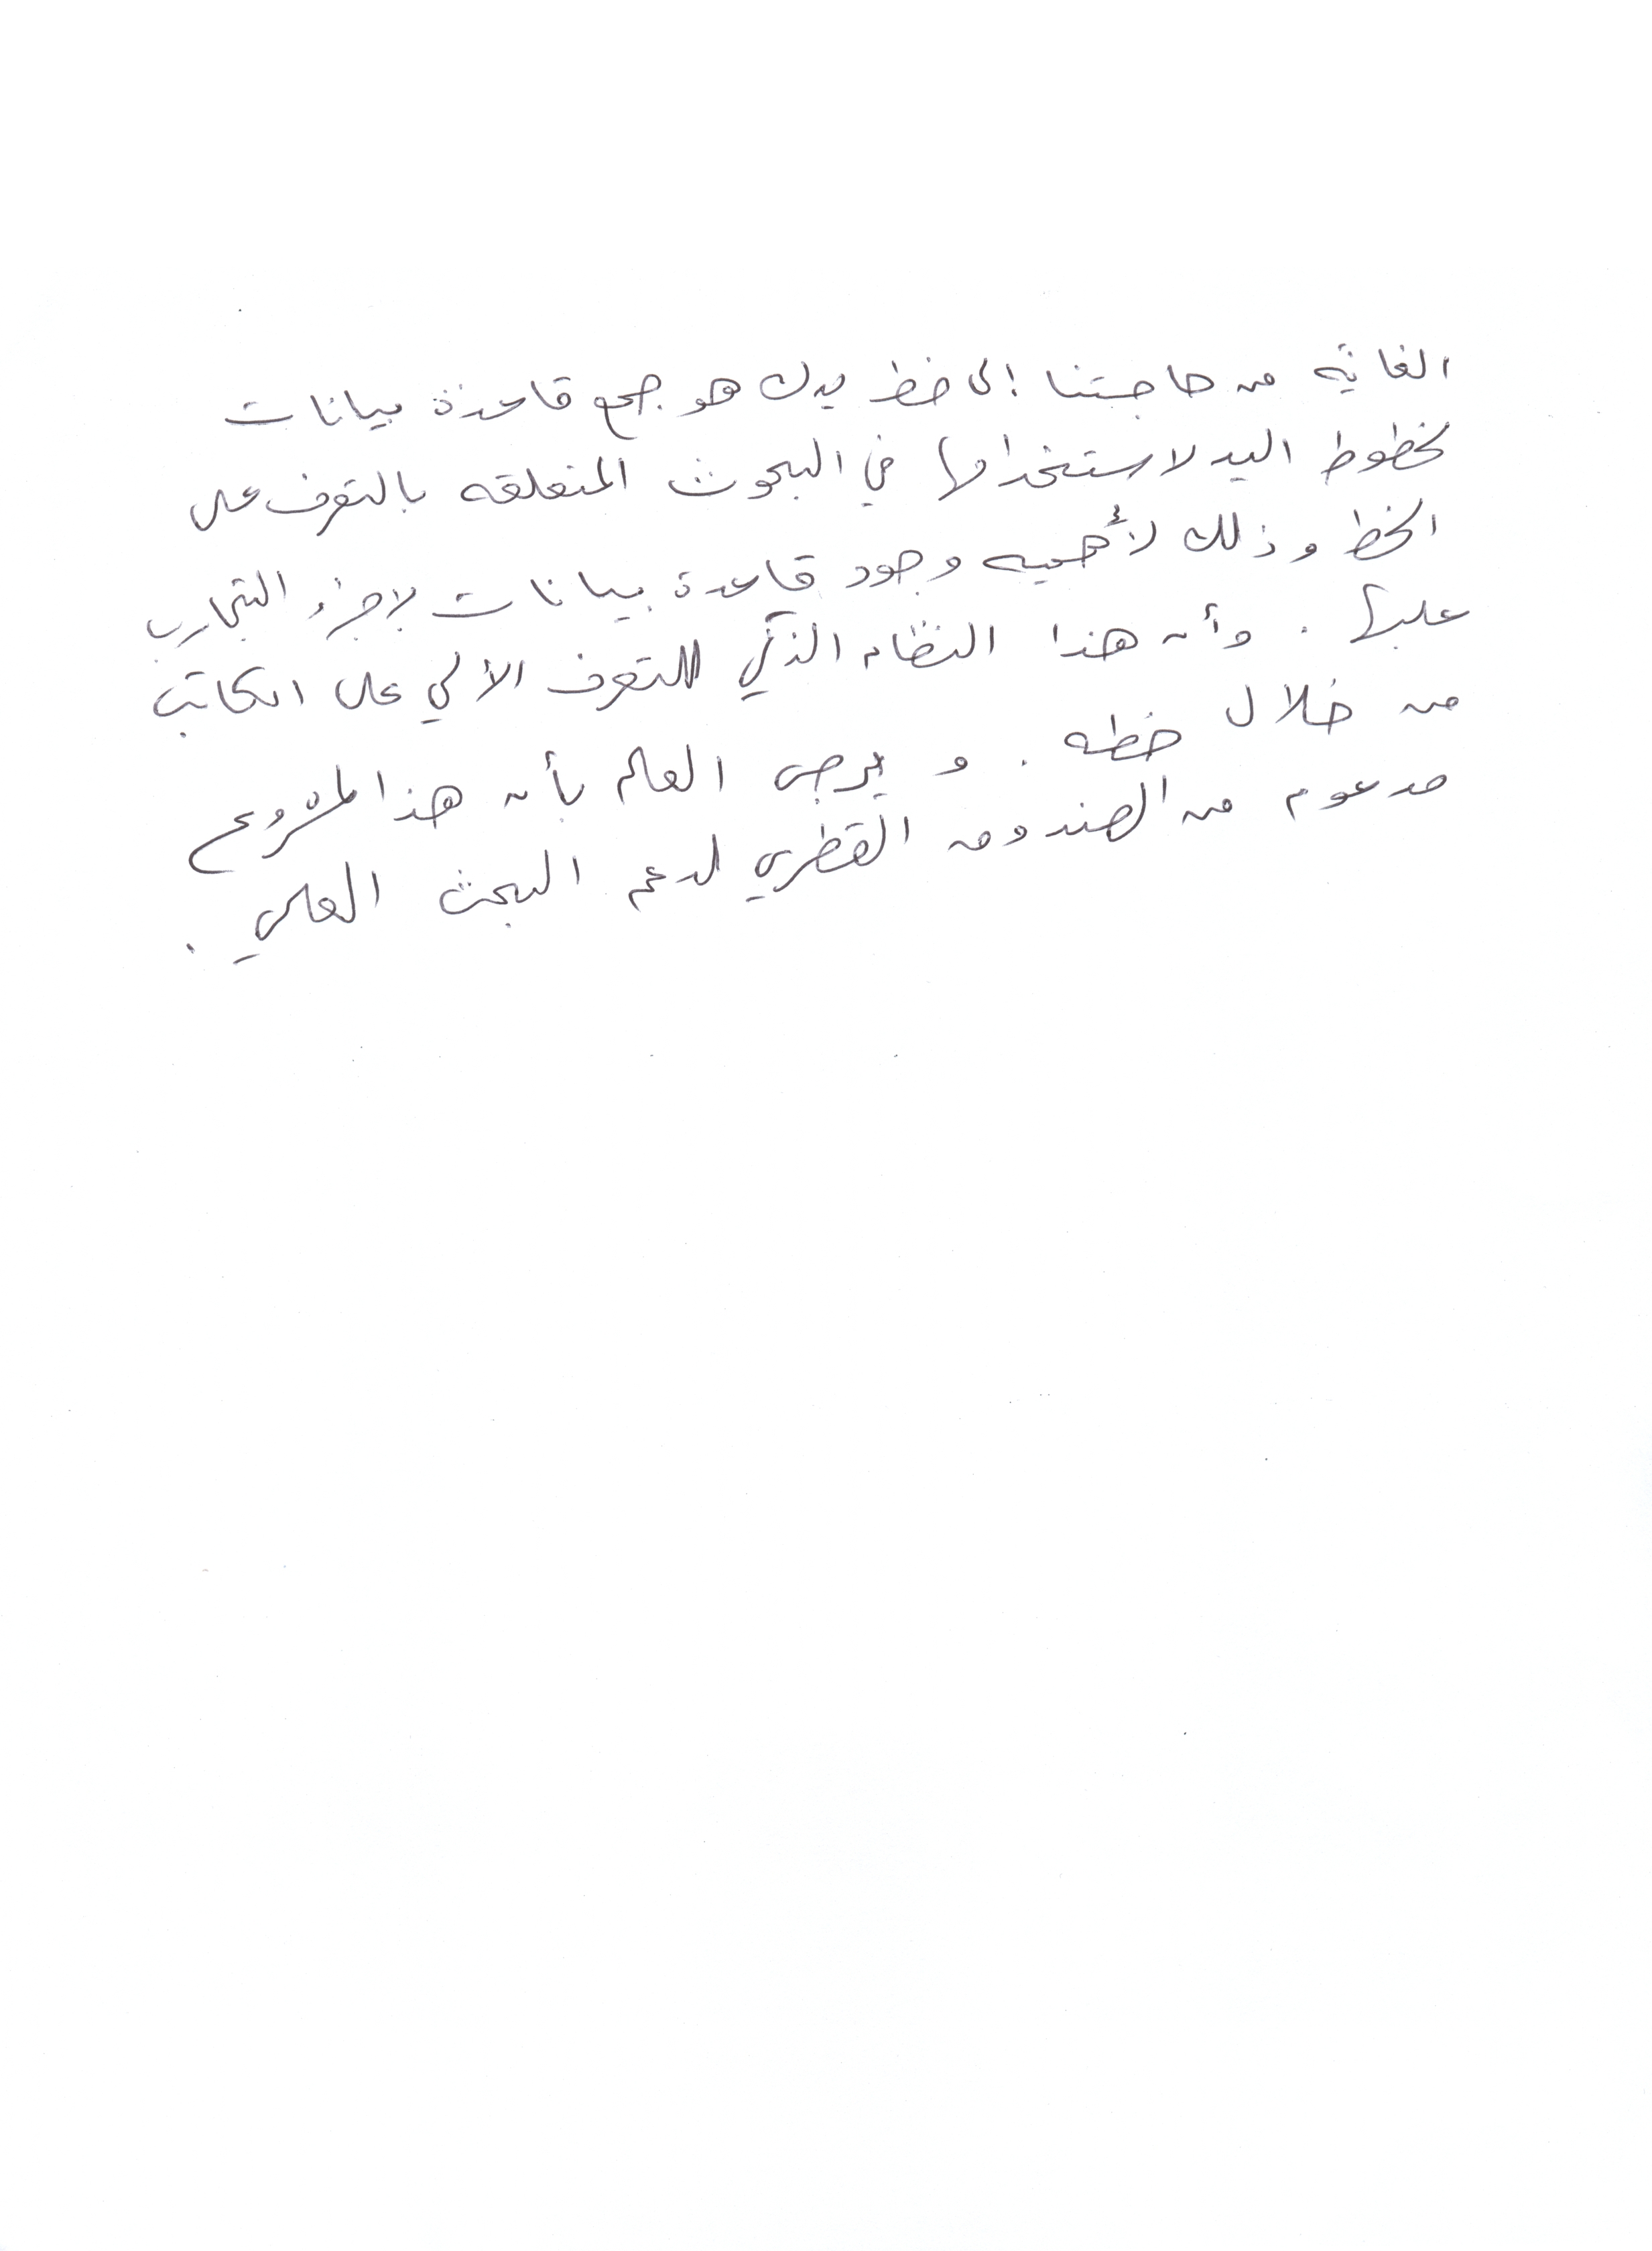 الغاية من حاجتنا إلى خط يدك هو جمع قاعدة بيانات
لخطوط اليد لاستخدامها في البحوث المتعلقه بالتعرف على
الخط وذلك لأهميه وجود قاعدة بيانات لإجراء التجارب
عليها . وأن هذا النظام الذكي للتعرف الألي على الكاتب
من خلال خطه . و يرجى العلم بأن هذا المشروع
مدعوم من الصندوق القطري لدعم البحث العلمي .